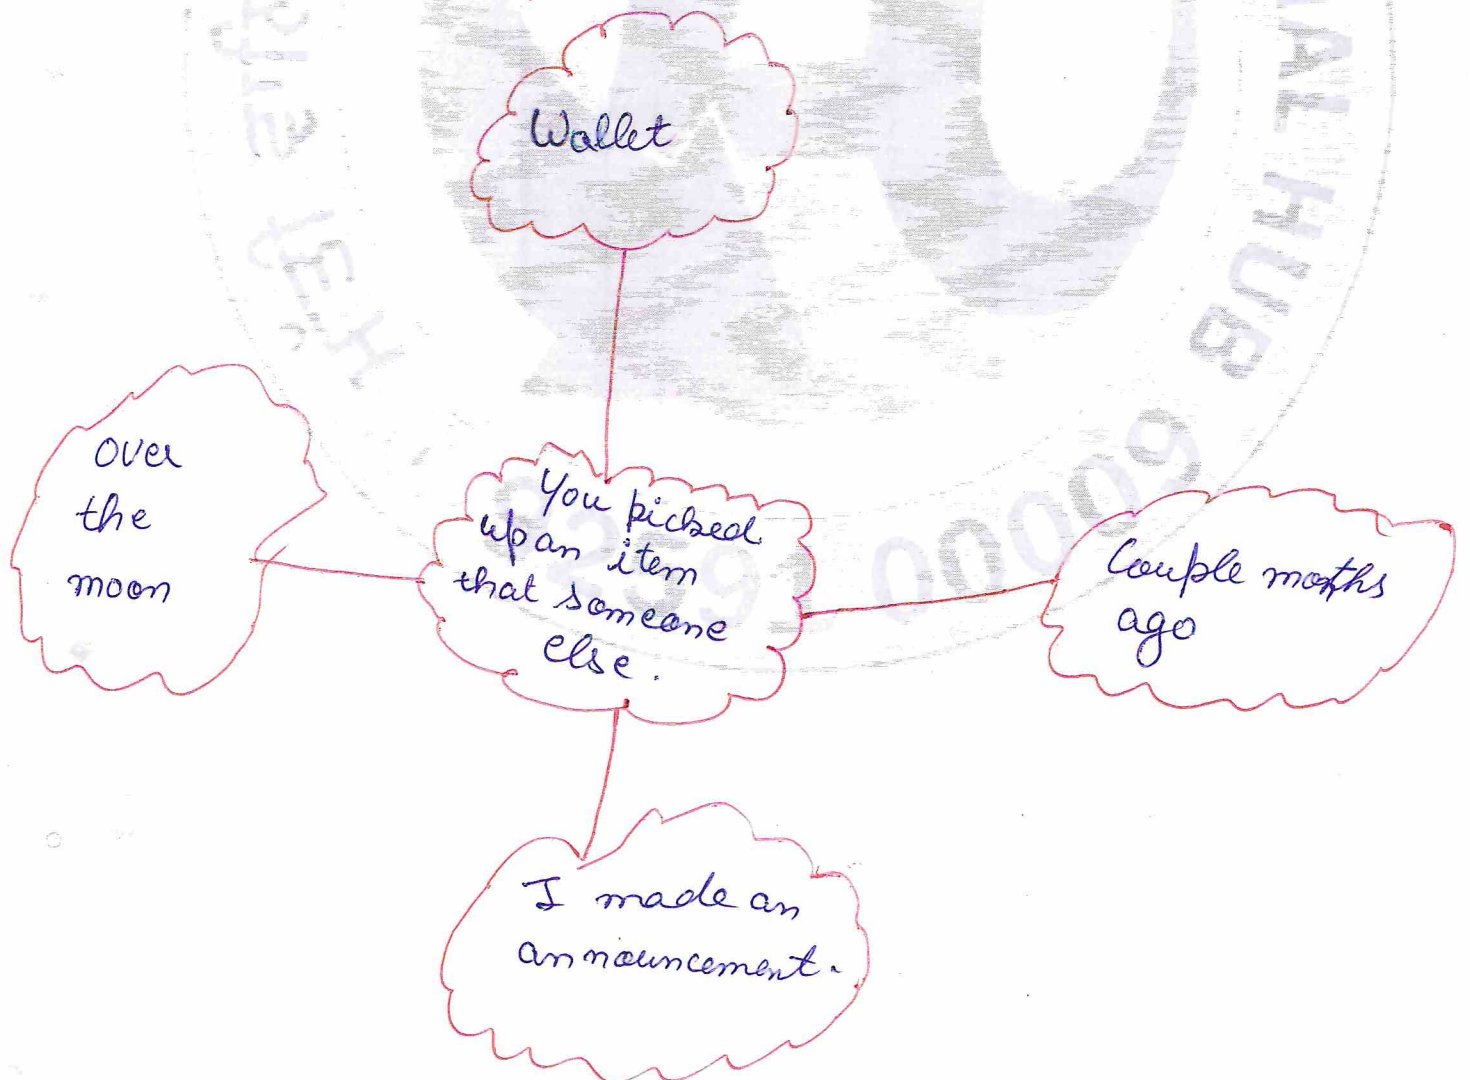 Wallet
Over
the
moon
You picked
up an item
that someone
else.
Couple months
ago
I made an
announcement.
AL HUB
0259 00009